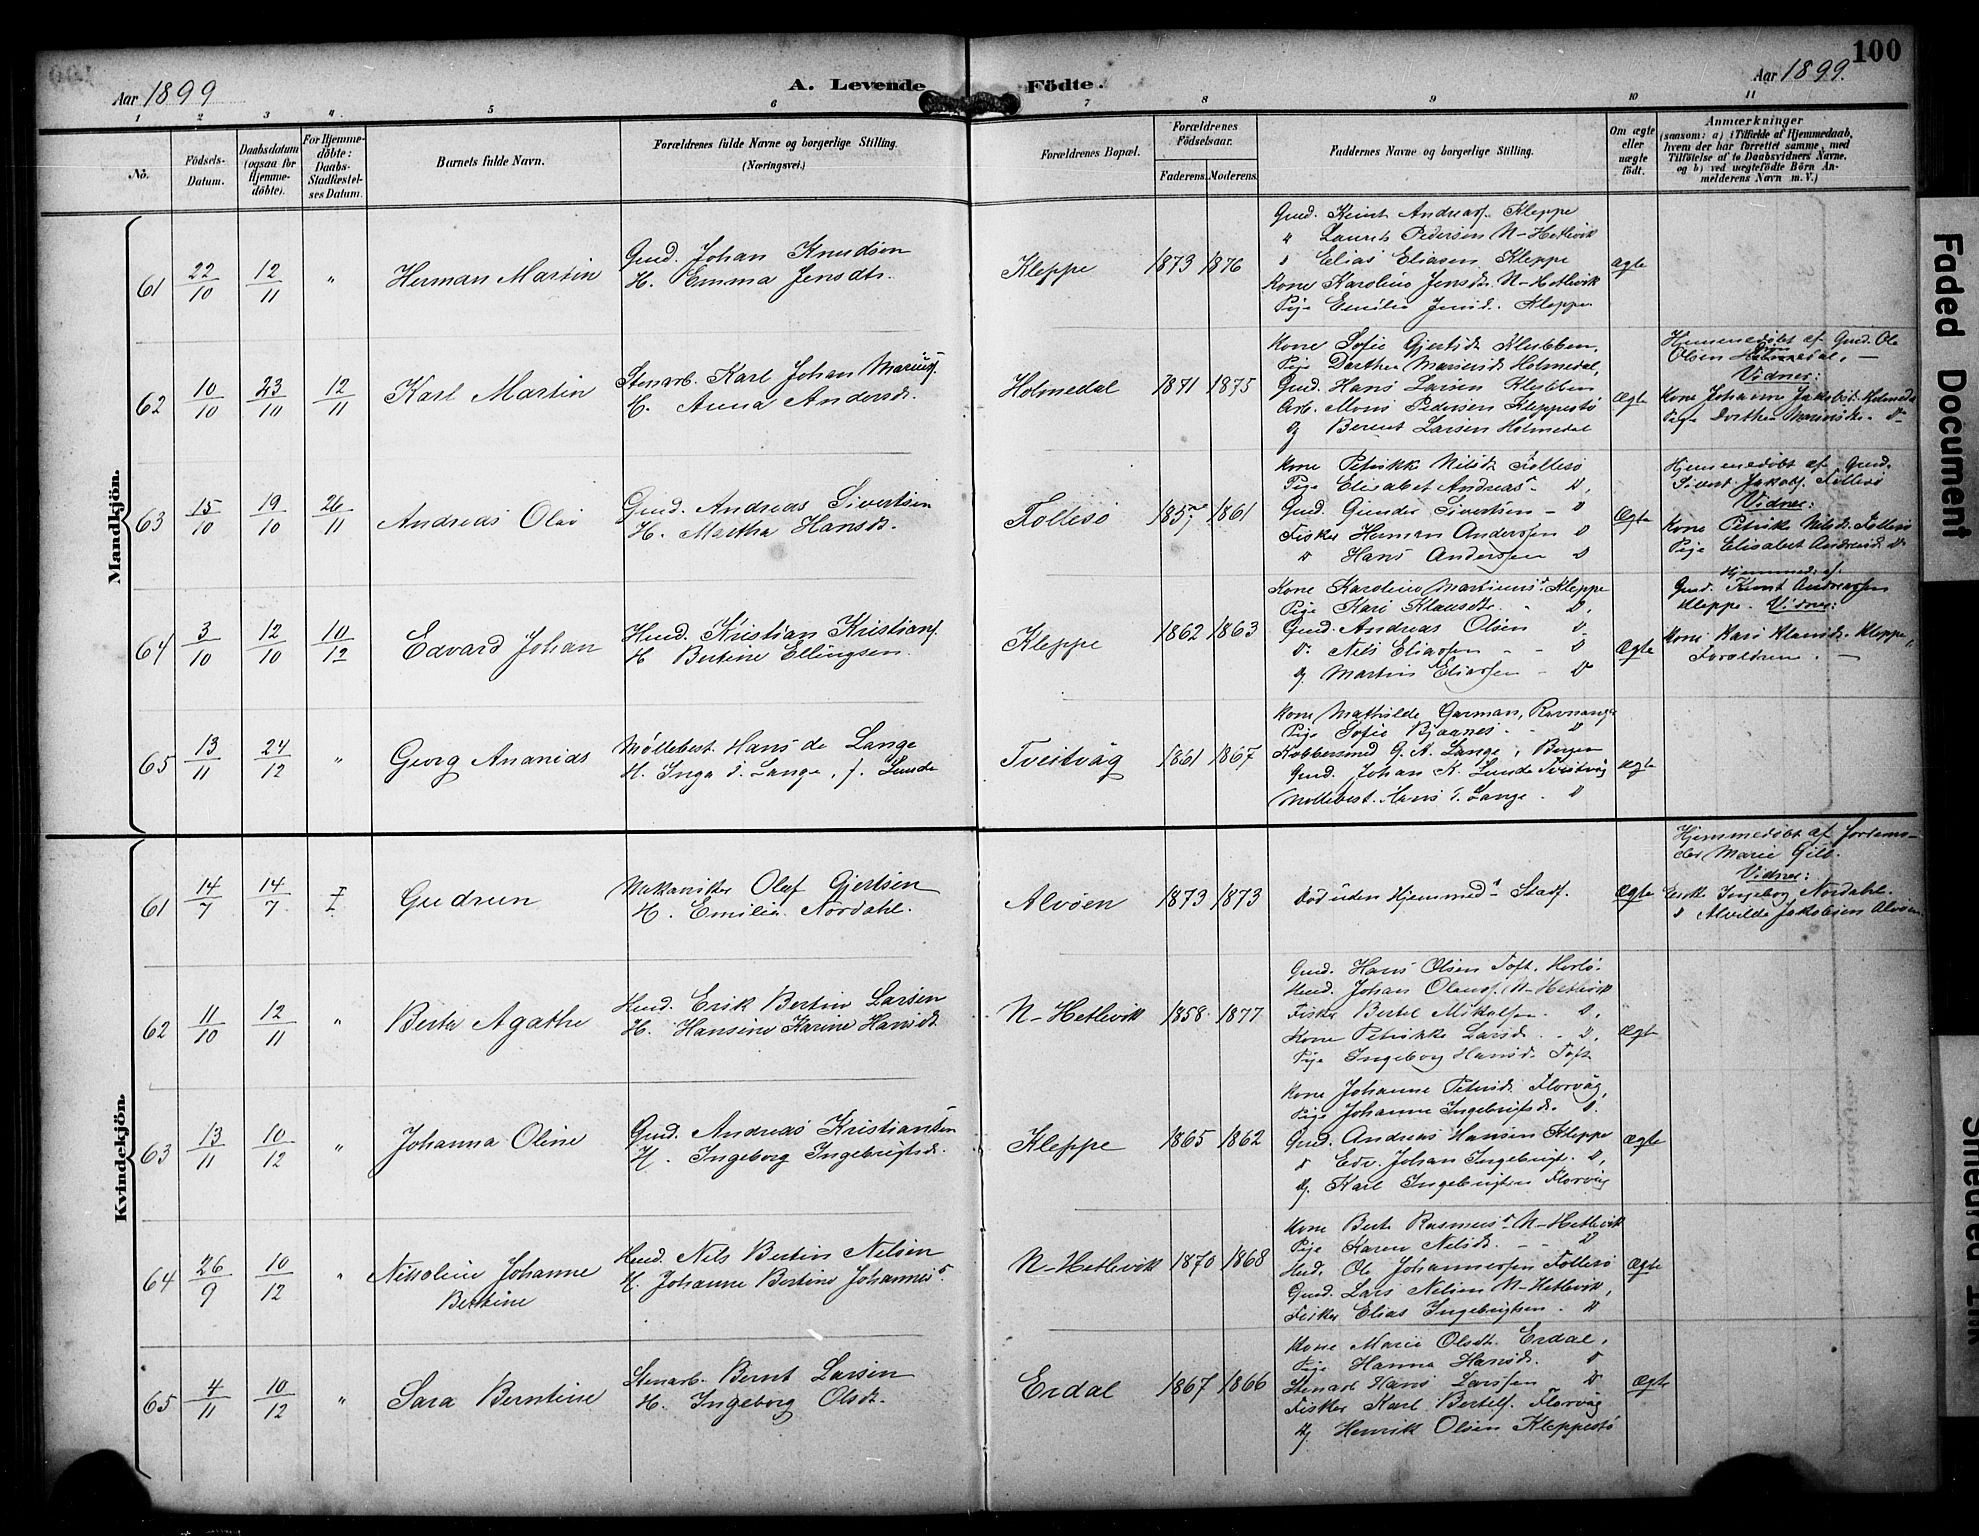 100
Aar 1899
A. Levende Födte.
Aar 1899.
1 2 3 4. 5 6 7 8 9 10 11
No.
Födsels-Datum.
Daabsdatum (ogsaa for Hjemme-döbte).
For Hjemme-döbte: Daabs-Stadfæstel-ses Datum.
Barnets fulde Navn.
Forældrenes fulde Navne og borgerlige Stilling.
(Næringsvei.)
Forældrenes Bopæl.
Forældrenes Födselsaar.
Faderens. Moderens.
Faddernes Navne og borgerlige Stilling.
Om ægte eller uægte födt.
Anmærkninger
(saasom: a) i Tilfælde af Hjemmedaab, hvem der har forrettet samme, med Tilföielse af to Daabsvidners Navne, og b) ved uægtefödte Börn An-melderens Navn m. V.)
Mandkjön.
61 22/10 12/11 " Herman Martin
Gmd. Johan Knudsen
H. Emma Jensdtr.
Kleppe 1873 1876
Gmd. Knut Andreasf. Kleppe
" Laurits Pedersen N-Hetlevik
" Elias Eliasen Kleppe
Kone Karoline Jensdtr. N-Hetlevik
Pige Emilie Jensd. Kleppe
ægte
62 10/10 23/10 12/11 Karl Martin
Stenarb. Karl Johan Mariusf.
H. Anna Andersdr.
Holmedal 1871 1875
Kone Sofie Gjertsd.
Pige Dorthea Mariusd. Holmedal,
Gmd. Hans Larsen
Arb. Mons Pedersen Kleppestø
Berent Larsen Holmedal
Ægte
Hjemmedøbt af Gmd. Ole
Olsen Holmedal, —
Vidner:
Kone Johanne Jakobsd. Holmedal
Pige Dorthea Mariusdtr. D-
63 15/10 19/10 26/11 Andreas Olai
Gmd. Andreas Sivertsen
H. Martha Hansdtr.
Follesø 1857 1861
Kone Petrikke Nilsdtr. Follesø
Pige Elisabet Andreasd D,
Gmd. Gunder Sivertsen - D
Fisker Herman Anderssen D
" Hans Anderssen D
Ægte
Hjemmedøbt af Gmd.
Sivert Jakobsf. Follesø
Vidner:
Kone Petrike Nilsd. Follesø
Pige Elisabet Andreasd. D-
64 3/10 12/10 10/12 Edvard Johan
Hmd. Kristian Kristiansf.
H. Bertine Ellingsen
Kleppe 1862 1863
Kone Karoline Martinusd. Kleppe
Pige Kari Klausdtr. " D,
Gmd. Andreas Olsen D
D. Nils Eliassen - - D
Martin Eliassen - D
Ægte
Hjemmed. af
Gmd. Knut Andreassen
Kleppe. Vidner:
Kone Kari Klausd. Kleppe,
Forældrene. —
65 13/11 24/12 " Georg Ananias
Møllebest. Hans de Lange
H. Inga d. Lange, f. Lunde
Tveitvåg 1861 1867
Kone Mathilde Garman, Ravnanger
Pige Sofie Bjaanes. - D
Kobbersmed G. A. Lange, Bergen
Gmd. Johan K. Lunde Tveitvåg
Møllebest. Hans d. Lange. D
Ægte
Kvindekjön.
61 14/7 14/7 Gudrun
Mekaniker Olaf Gjertsen
H. Emilie Nordahl.
Alvøen 1873 1873
Død uden Hjemmed-s Stadf.
Ægte
Hjemmedøbt af Jordemo-
der Marie Gild.
Vidner:
Enke Ingebog Nordahl.
D Alvilde Jakobsen Alvøen
62 11/10 12/11 " Berta Agathe
Hmd. Erik Bertin Larsen
H. Hansine Karine Hansdtr.
N-Hetlevik 1858 1877
Gmd. Hans Olsen Toft. Herlø.
Hmd. Johan Olausf. N-Hetlevik
Fisker Bertel Mikalsen. D,
Kone Petrikke Larsd. .. D,
Pige Ingeborg Hansd. Toft
Ægte
63 13/11 10/12 " Johanna Oline
Gmd. Andreas Kristiansen
H. Ingeborg Ingebrigtsd.
Kleppe 1865 1862
Kone Johanne Petersd. Florvåg,
Pige Johanne Ingebrigtsd. D.
Gmd. Andreas Hansen Kleppe
D Edv. Johan Ingebrigt. D,
Karl Ingebrigtsen Florvåg
Ægte
64 26/9 10/12 " Nikoline Johanne
Bertine
Hmd. Nils Bertin Nilsen
H. Johanne Bertine Johannesd.
N-Hetlevik 1870 1868
Kone Berte Rasmusd. N-Hetlevik
Pige Karen Nilsdtr. - - D
Hmd. Ole Johannessen Follesø
Gmd. Lars Nilsen N-Hetlevik,
Fisker Elias Ingebrigtsen. D
Ægte
65 4/11 10/12 " Sara Berntine
Stenarb. Bernt Larsen
H. Ingeborg Olsdtr.
Erdal 1867 1866
Kone Marie Olsdtr. Erdal,
Pige Hanna Hansdtr. D
Stenarb. Hans Larssen D
Fisker Karl Bertelsf. Florvåg
Henrik Olsen Kleppestø
Ægte
Faded Document
Smeared Ink